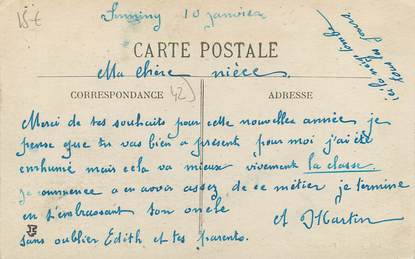 15€
10 janvier
ici la neige tombe
tous les jours
CARTE POSTALE
Ma chère nièce.
CORRESPONDANCE
42
ADRESSE
Merci de tes souhaits pour cette nouvelle année je
pense que tu vas bien a présent pour moi j'ai été
enrhumé mais cela va mieux vivement la classe.
je commence a en avoir assez de ce métier je termine
en t'embrassant ton oncle
et Martin
sans oublier Edith et tes parents.